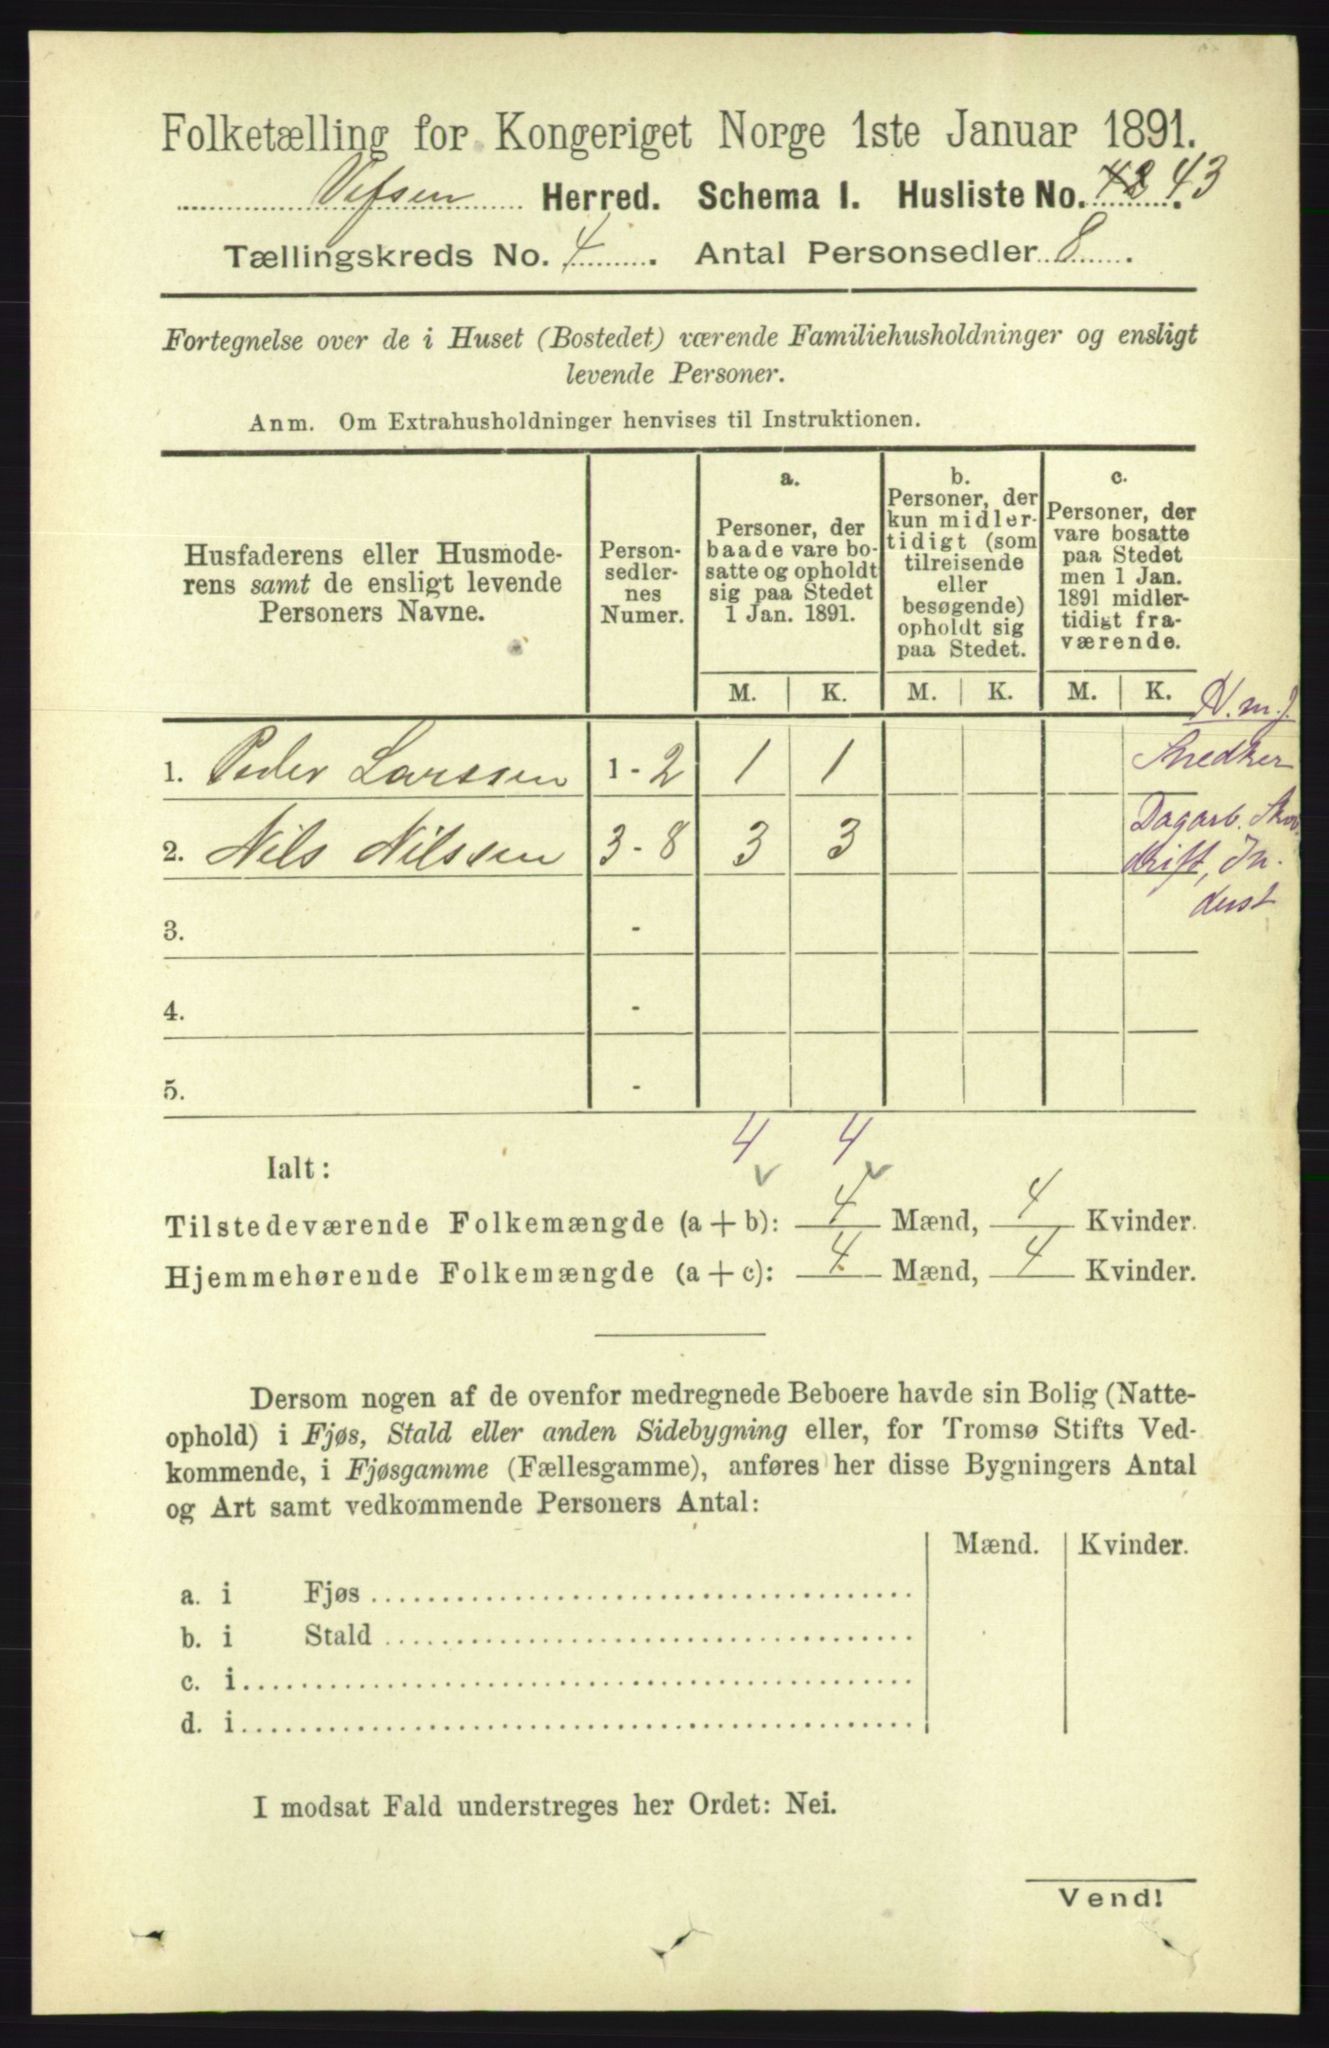 Folketælling for Kongeriget Norge 1ste Januar 1891.
Vefsen Herred. Schema I. Husliste No. 42 43.
Tællingskreds No. 4. Antal Personsedler 8.
Fortegnelse over de i Huset (Bostedet) værende Familiehusholdninger og ensligt
levende Personer.
Anm. Om Extrahusholdninger henvises til Instruktionen.
Husfaderens eller Husmode-
rens samt de ensligt levende
Personers Navne.
Person-
sedler-
nes
Numer.
a.
Personer, der
baade vare bo-
satte og opholdt
sig paa Stedet
1 Jan. 1891.
b.
Personer, der
kun midler-
tidigt (som
tilreisende
eller
besøgende)
opholdt sig
paa Stedet.
c.
Personer, der
vare bosatte
paa Stedet
men 1 Jan.
1891 midler-
tidigt fra-
værende.
M. K. M. K. M. K.
N.m.J.
1. Peder Larssen 1 - 2 1 1 Snedker
2. Nils Nilssen 3 - 8 3 3 Dagarb. Skov
drift, In-
dust
3. -
4. -
5. -
4 4
Ialt:
Tilstedeværende Folkemængde (a + b): 4 Mænd, 4 Kvinder.
Hjemmehørende Folkemængde (a + c): 4 Mænd, 4 Kvinder.
Dersom nogen af de ovenfor medregnede Beboere havde sin Bolig (Natte-
ophold) i Fjøs, Stald eller anden Sidebygning eller, for Tromsø Stifts Ved-
kommende, i Fjøsgamme (Fællesgamme), anføres her disse Bygningers Antal
og Art samt vedkommende Personers Antal:
Mænd. Kvinder.
a. i Fjøs
b. i Stald
c. i
d. i
I modsat Fald understreges her Ordet: Nei.
Vend!